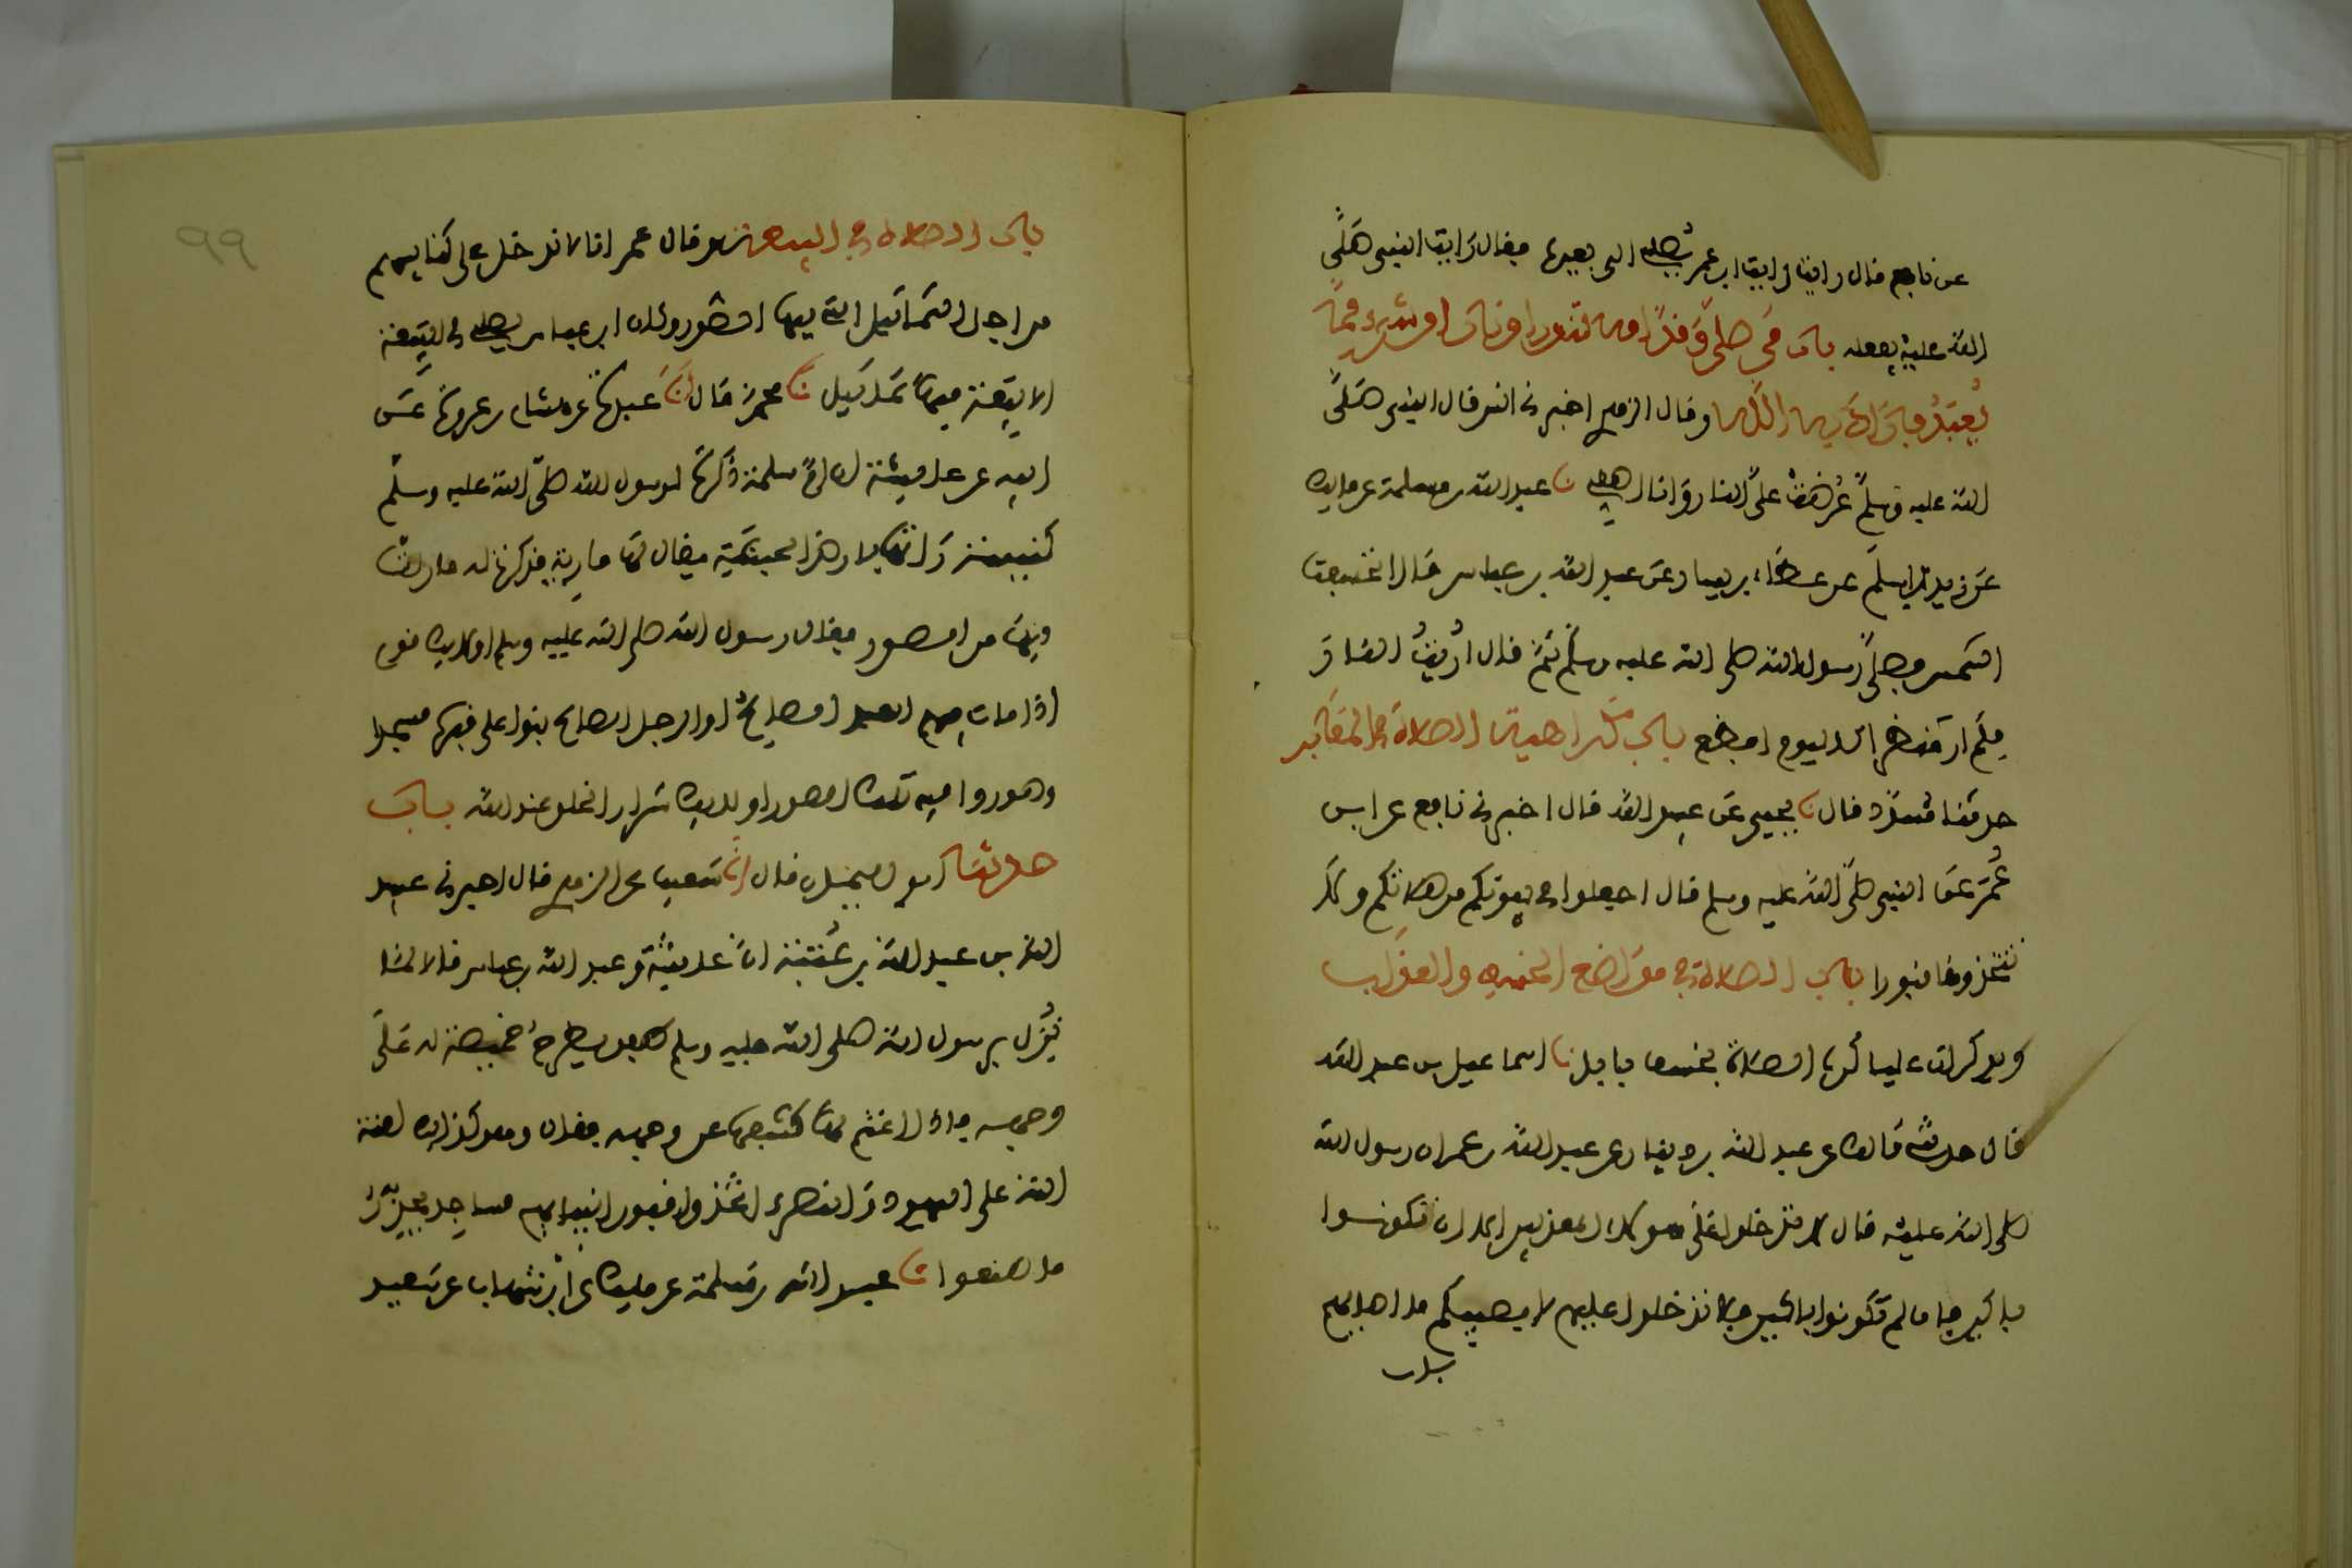 عن نافع قال رايت ابن عمر يصلي الى بعيره فقال رايت النبي صلى
الله عليه يفعله باب من صلى وقدامه تنور او نار او شيء مما
يعبد فاراد به الله وقال الزهري اخبرني انس قال النبي صلى
الله عليه وسلم عرضت علي النار وانا اصلي نا عبد الله بن مسلمة عن مالك
عن زيد بن اسلم عن عطاء بن يسار عن عبد الله بن عباس قال انخسفت
الشمس فصلى رسول الله صلى الله عليه وسلم ثم قال اريت النار
فلم ار منظرا كاليوم افظع باب كراهية الصلاة في المقابر
حدثنا مسدد قال نا يحيى عن عبيد الله قال اخبرني نافع عن ابن
عمر عن النبي صلى الله عليه وسلم قال اجعلوا في بيوتكم من صلاتكم ولا
تتخذوها قبورا باب الصلاة في مواضع الخسف والعذاب
ويذكر ان عليا كره الصلاة بخسف بابل نا اسماعيل بن عبد الله
قال حدثني مالك عن عبد الله بن دينار عن عبد الله بن عمر ان رسول الله
صلى الله عليه قال لا تدخلوا على هولاء المعذبين الا ان تكونوا
باكين فان لم تكونوا باكين فلا تدخلوا عليهم لا يصيبكم ما اصابهم
باب
باب الصلاة في البيعة وقال عمر انا لا ندخل على كنايسهم
من اجل التماثيل التي فيها الصور وكان ابن عباس يصلي في البيعة
الا بيعة فيها تماثيل نا محمد قال انا عبدة عن هشام بن عروة عن
ابيه عن عايشة ان ام سلمة ذكرت لرسول الله صلى الله عليه وسلم
كنيسة راتها بارض الحبشة يقال لها مارية فذكرت له ما رات
فيها من الصور فقال رسول الله صلى الله عليه وسلم اولايك قوم
اذا مات فيهم العبد الصالح او الرجل الصالح بنوا على قبره مسجدا
وصوروا فيه تلك الصور اوليك شرار الخلق عند الله باب
حدثنا ابو اليمان قال انا شعيب عن الزهري قال اخبرني عبيد
الله بن عبد الله بن عتبة ان عايشة وعبد الله بن عباس قالا لما
نزل برسول الله صلى الله عليه وسلم طفق يطرح خميصة له على
وجهه فاذا اغتم بها كشفها عن وجهه فقال وهو كذلك لعنة
الله على اليهود والنصرى اتخذوا قبور انبيايهم مساجد يحذر
ما صنعوا نا عبد الله بن مسلمة عن مالك عن ابن شهاب عن سعيد
٩٩